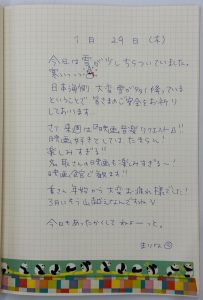 1月29日(木)
今日は雪が少しちらついていました。
寒いっっ
日本海側 大変 雪が多く降っている
ということで 皆さまのご安全をお祈り
しております。
さて 来週は『映画音楽リクエスト』!!
映画好きとしては たまらん!
楽しみすぎる!!
さんの映画も楽しみすぎる〜!
映画館で観ます!!
皆さん 年始から 大変お疲れ様でした!
3月にもう一山越えなんですね
今日もあったかくして ねよーっと。
まりな